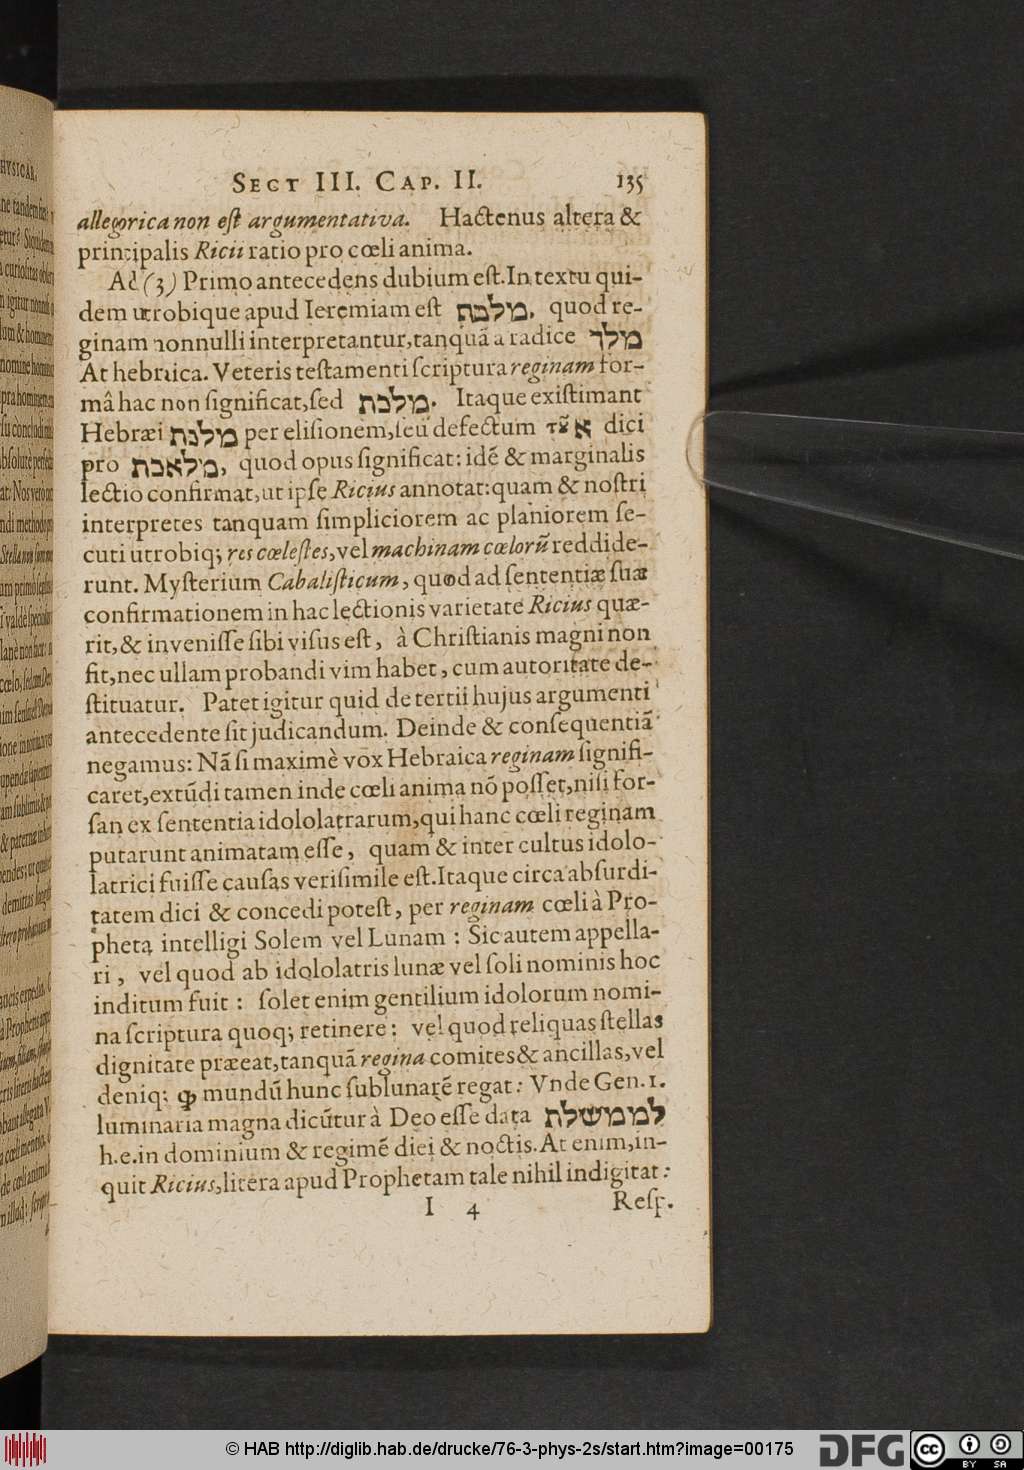 Sect III. Cap. II. 135
allegorica non eſt argumentativa. Hactenus altera &
principalis Ricii ratio pro cœli anima.
Ad (3) Primo antecedens dubium eſt. In textu qui-
dem utrobique apud Ieremiam eſt מלכת, quod re-
ginam nonnulli interpretantur, tanquã a radice מלך
At hebraica. Veteris teſtamenti ſcriptura reginam for-
mâ hac non ſignificat, ſed מלכת. Itaque exiſtimant
Hebræi מלכת per eliſionem, ſeu defectum τȣ̃ א dici
pro מלאכת, quod opus ſignificat: idẽ & marginalis
lectio confirmat, ut ipſe Ricius annotat: quam & noſtri
interpretes tanquam ſimpliciorem ac planiorem ſe-
cuti utrobiq; res cœleſtes, vel machinam cœlorũ reddide-
runt. Myſterium Cabaliſticum, quod ad ſententiæ ſuæ
confirmationem in hac lectionis varietate Ricius quæ-
rit, & inveniſſe ſibi viſus eſt, à Chriſtianis magni non
fit, nec ullam probandi vim habet, cum autoritate de-
ſtituatur. Patet igitur quid de tertii hujus argumenti
antecedente ſit judicandum. Deinde & conſequentiã
negamus: Nã ſi maximè vox Hebraica reginam ſignifi-
caret, extũdi tamen inde cœli anima nõ poſſet, niſi for-
ſan ex ſententia idololatrarum, qui hanc cœli reginam
putarunt animatam eſſe, quam & inter cultus idolo-
latrici fuiſſe cauſas veriſimile eſt. Itaque circa abſurdi-
tatem dici & concedi poteſt, per reginam cœli à Pro-
pheta intelligi Solem vel Lunam: Sic autem appella-
ri, vel quod ab idololatris lunæ vel ſoli nominis hoc
inditum fuit: ſolet enim gentilium idolorum nomi-
na ſcriptura quoq; retinere: vel quod reliquas ſtellas
dignitate præeat, tanquã regina comites & ancillas, vel
deniq; ꝙ mundũ hunc ſublunarẽ regat: Vnde Gen. 1.
luminaria magna dicũtur à Deo eſſe data לממשלת
h. e. in dominium & regimẽ diei & noctis. At enim, in-
quit Ricius, litera apud Prophetam tale nihil indigitat:
I 4 Reſp.
© HAB http://diglib.hab.de/drucke/76-3-phys-2s/start.htm?image=00175
DFG
cc BY SA